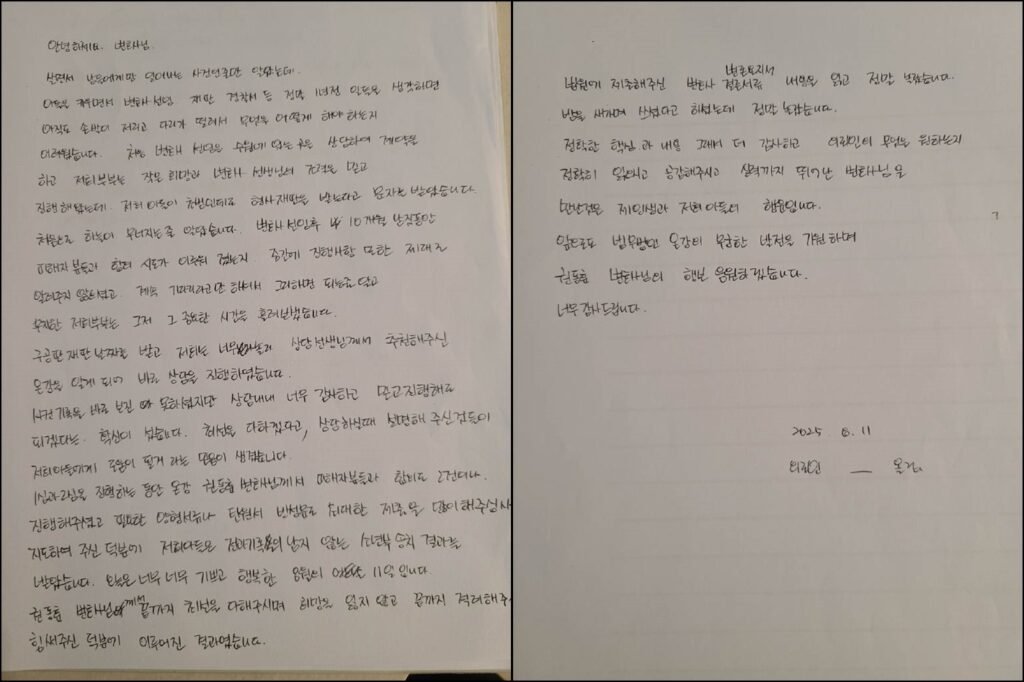 안녕하세요. 변호사님.
살면서 남들에게만 일어나는 사건인줄만 알았는데.
아들을 키우면서 변호사 선임. 재판 경찰서 등 정말 1년전 일들을 생각하면
아직도 손발이 저리고 다리가 떨려서 무엇을 어떻게 해야 하는지
어려웠습니다. 처음 변호사 선임은 수원에 있는 곳을 상담하여 계약을
하고 저희부부는 작은 희망과 변호사 선생님의 간절을 믿고
진행해왔는데. 저희아들이 처벌인데요 형사재판을 받는다고 문자를 받았습니다.
처음으로 하늘이 무너지는줄 알았습니다. 변호사 선임후 10개월 남짓동안
피해자분들과 합의 시도가 이루워 졌는지. 중간에 진행사항 또한 제대로
알려주지 않으셨고. 계속 기다리라고만 하셔서 그렇게하면 되는줄 알고
무지한 저희부부는 그저 그 중요한 시간을 흘려보냈습니다.
구공판 재판 날짜를 받고 저희는 너무 놀라 상담선생님께서 추천해주신
온강을 알게 되어 바로 상담을 진행하였습니다.
사건 기록을 바로 보진 못하셨지만 상담내내 너무 감사하고 믿고진행해도
되겠다는. 확신이 섰습니다. 최선을 다하겠다고, 상담하실때 설명해 주신것들이
저희아들에게 도움이 될거 라는 믿음이 생겼습니다.
1심과 2심을 진행하는 동안 온강 변호사님께서 피해자분들과 합의도 2건이나
진행해주셨고 필요한 양형서류나 탄원서 반성문도 최대한 제출을 많이해주십사
지도하여 주신 덕분에 저희아들은 전과기록이 남지 않는 소년부 송치 결과를
받았습니다. 오늘은 너무 너무 기쁘고 행복한 8월의 11일 입니다.
변호사님께서 끝까지 최선을 다해주시며 희망을 잃지 않고 끝까지 격려해주
힘써주신 덕분에 이루어진 결과였습니다.
법원에 제출해주신 변호사 변론요지서 내용을 읽고 정말 놀랐습니다.
밤을 새가며 쓰셨다고 하셨는데 정말 놀랐습니다.
정확한 핵심과 내용 그래서 더 감사하고 의뢰인이 무엇을 원하는지
정확히 알으시고 공감해주시고 실력까지 뛰어난 변호사님을
만난것은 제인생과 저희아들의 행운입니다.
앞으로도 법무법인 온강의 무궁한 발전을 기원하며
변호사님의 행보 응원하겠습니다.
너무감사드립니다.
2025. 8. 11
의뢰인